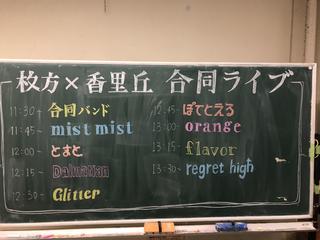 枚方×香里丘 合同ライブ
11:30~ 合同バンド
11:45~ mist mist
12:00~ とまと
12:15~ DalmaNan
12:30~ Glitter
12:45~ ぽてとえろ
13:00~ orange
13:15~ flavor
13:30~ regret high